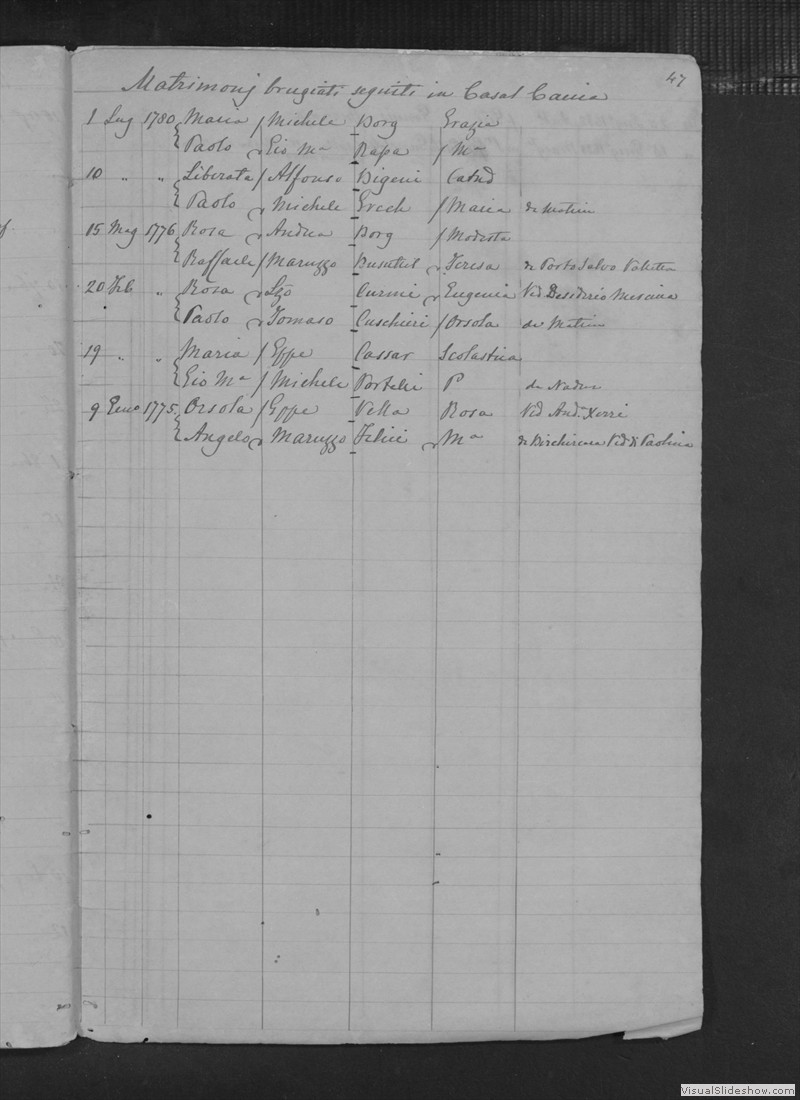 47
Matrimonj brugiati seguiti in Casal Caccia
1 Lug 1780 Maria / Michele Borg Grazia
Paolo Gio Ma Rapa / Ma
10 " " Liberata / Alfonso Bigeni Catnd
Paolo Michele Grech / Maria da Matien
15 Mag 1776 Rosa Andrea Borg / Modesta
Raffaele / Maruzzo Busuttil Teresa da Porto Salvo Valletta
20 Feb " Rosa Lzo Curmi Eugenia Ved Desiderio Messina
Paolo Tomaso Cuschieri / Orsola da Matien
19 " " Maria / Gppe Cassar Scolastica
Gio Ma / Michele Portelli P da Nadur
9 Genn 1775 Orsola / Gppe Vella Rosa Ved And. Xerri
Angelo Maruzzo Felici Ma da Birchircara Ved di Paolina
VisualSlideshow.com